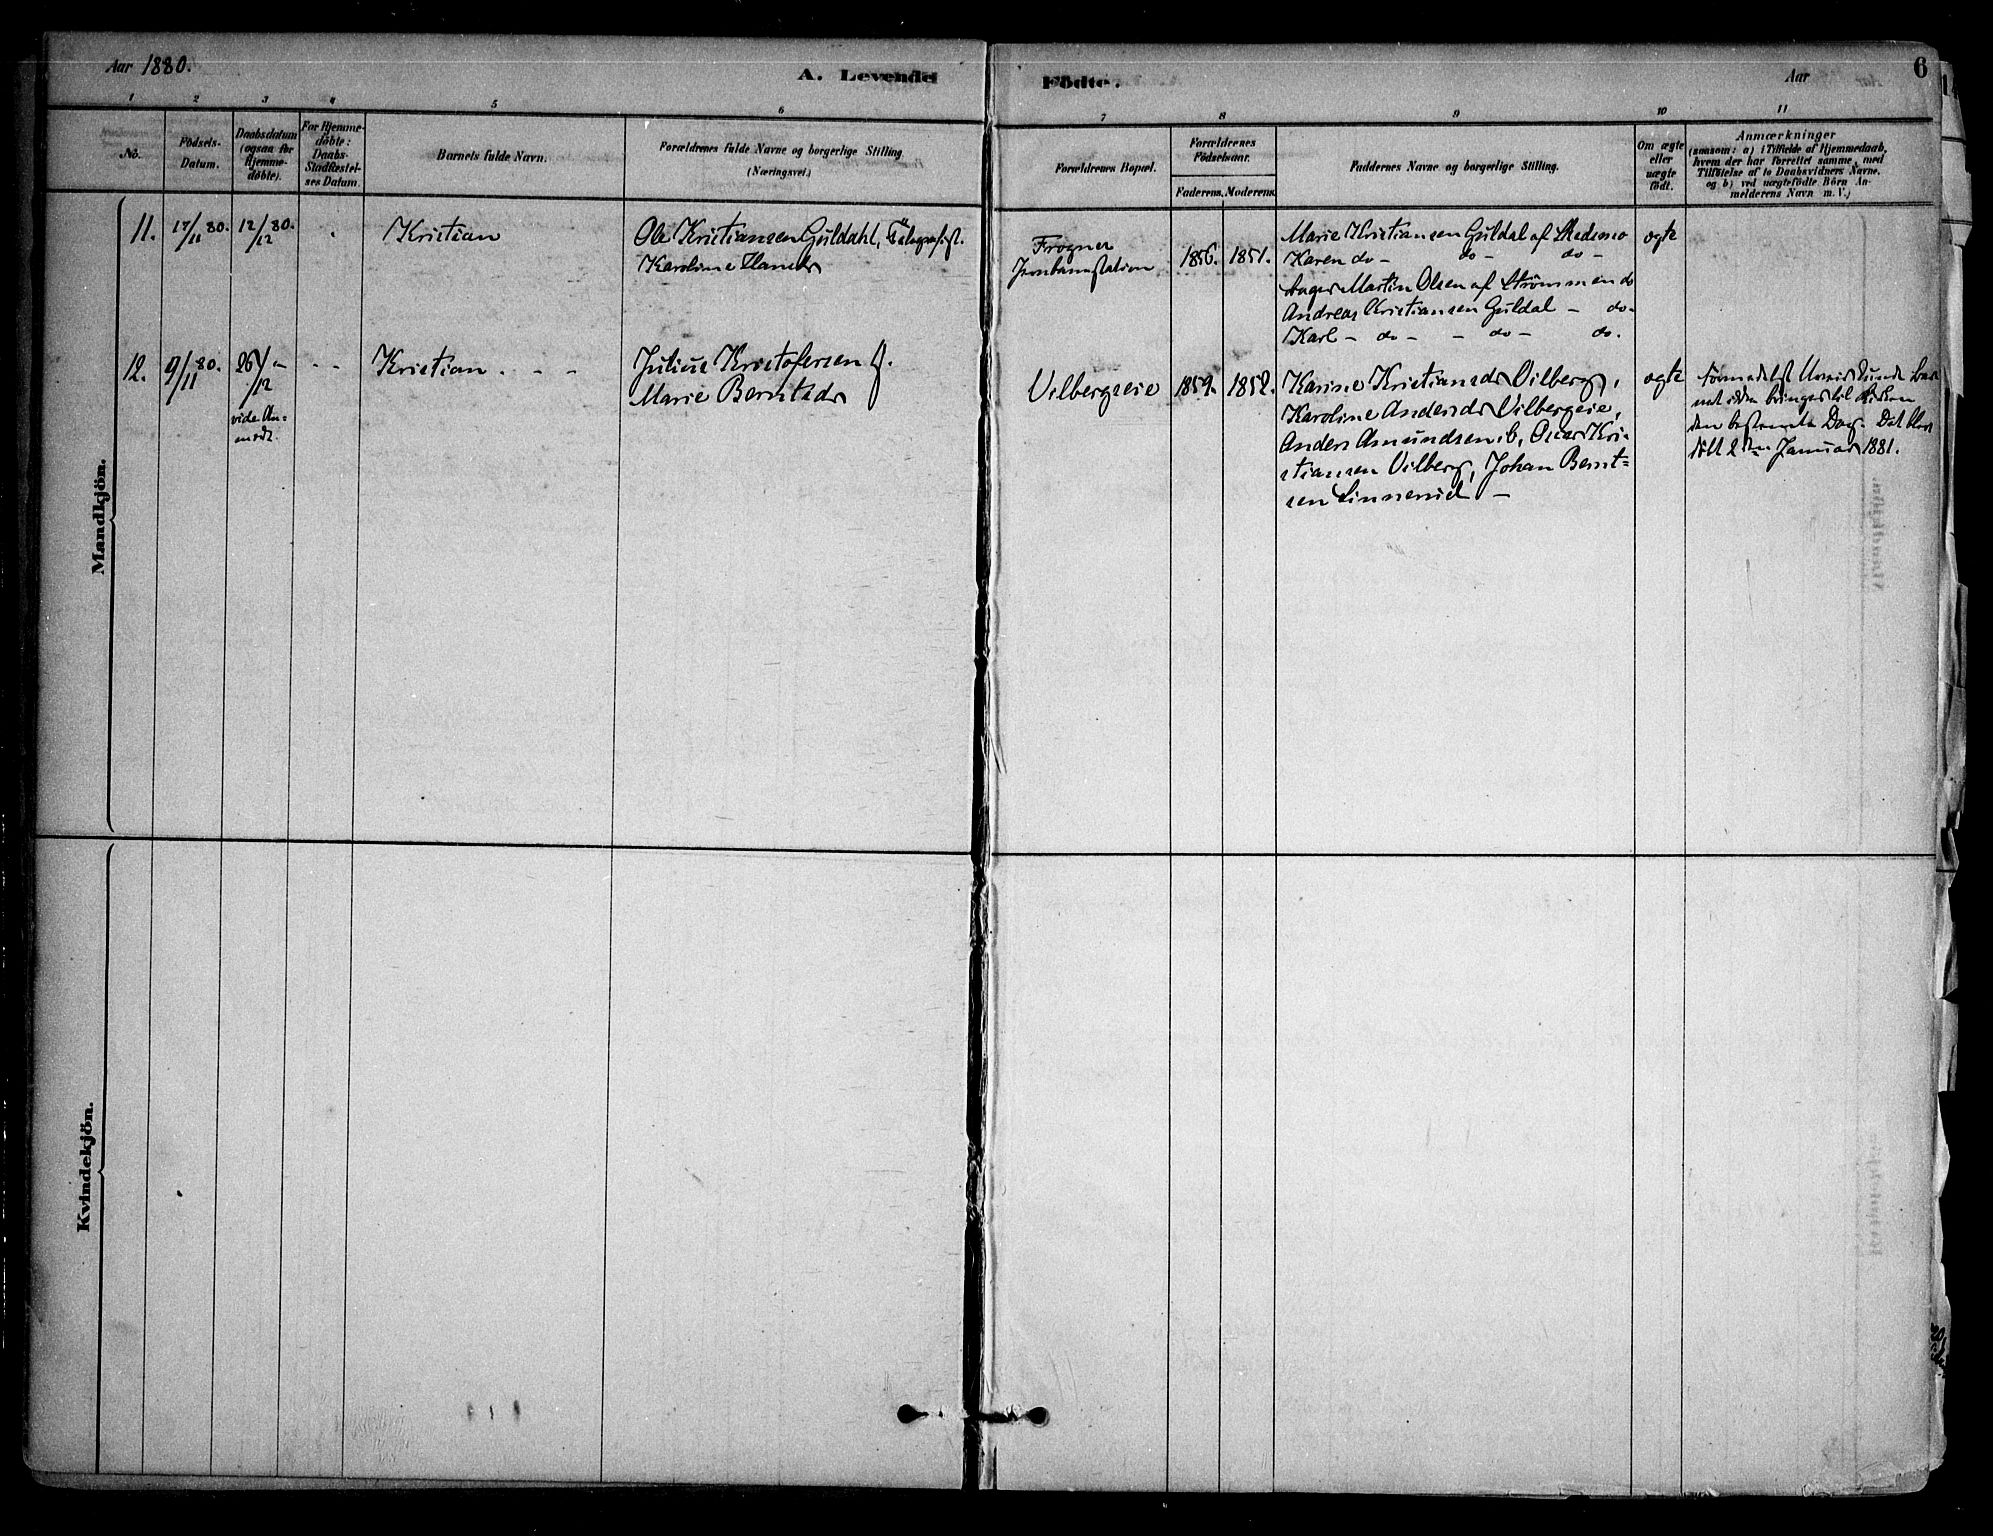 Aar 1880.
A. Levende
Födte.
Aar
6
1
2
3
4
5
6
7
8
9
10
11
No.
Födsels-
Datum.
Daabsdatum
(ogsaa for
Hjemme-
döbte).
For Hjemme-
döbte:
Daabs-
Stadfæstel-
ses Datum.
Barnets fulde Navn.
Forældrenes fulde Navne og borgerlige Stilling
(Næringsvei.)
Forældrenes Bopæl.
Forældrenes
Födselsaar.
Faderens.
Moderens.
Faddernes Navne og borgerlige Stilling.
Om ægte
eller
uægte
födt.
Anmærkninger
(saasom: a) i Tilfælde af Hjemmedaab,
hvem der har forrettet samme, med
Tilföielse af to Daabsvidners Navne,
og b) ved uægtefödte Börn An-
melderens Navn m. V.)
Mandkjön.
11.
17/11 80.
12/12 80.
Kristian
Ole Kristiansen Guldahl, Telegrafist.
Karoline
Frogner
Jernbanestation
1856.
1851.
Marie Kristiansen Guldal af Skedsmo
Karen do - do - do -
Martin Olsen af Strømmen do
Andreas Kristiansen Guldal - do-
Karl - do - - do - do.
ægte
12.
9/11 80.
26/12 -
vide An-
mærk.
Kristian. - -
Julius Kristofersen
Marie Berntsdr
Vilbergseie
1859.
1852.
Karine Kristiansdr Vilberg,
Karoline Andersdr Vilbergeie,
Anders Amundsen ib, Oscar Kri-
stiansen Vilberg, Johan Bernt-
sen Linnerud -
ægte
Formedelst Uveir kunde Bar-
net ikke bringes til Kirken
den bestemte Dag. Det blev
döbt 2den Januar 1881.
Kvindekjön.